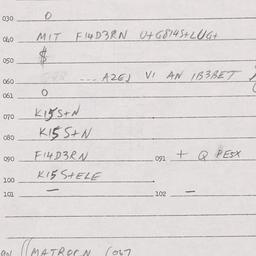 030 0
040 MIT F14D3RN U+G814S+LUG+
050 $
060 ... A2EJ VI AN 1B3BET
061 0
070 K15S+N
080 K15S+N
090 F14D3RN 091 + Q PESX
100 K15S+ELE
101 — 102 —
MATROEN